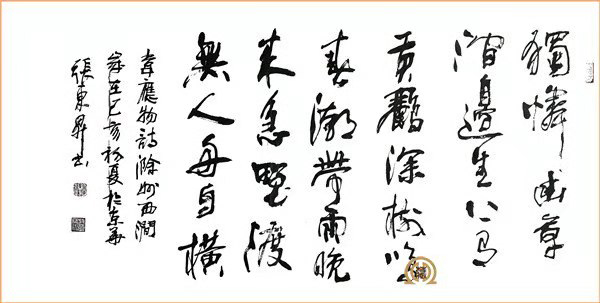 獨憐幽草
澗邊生上有
黃鸝深樹鳴
春潮帶雨晚
來急野渡
無人舟自橫
韋應物詩滁州西澗
歲在己亥初夏於京華
張東昇書